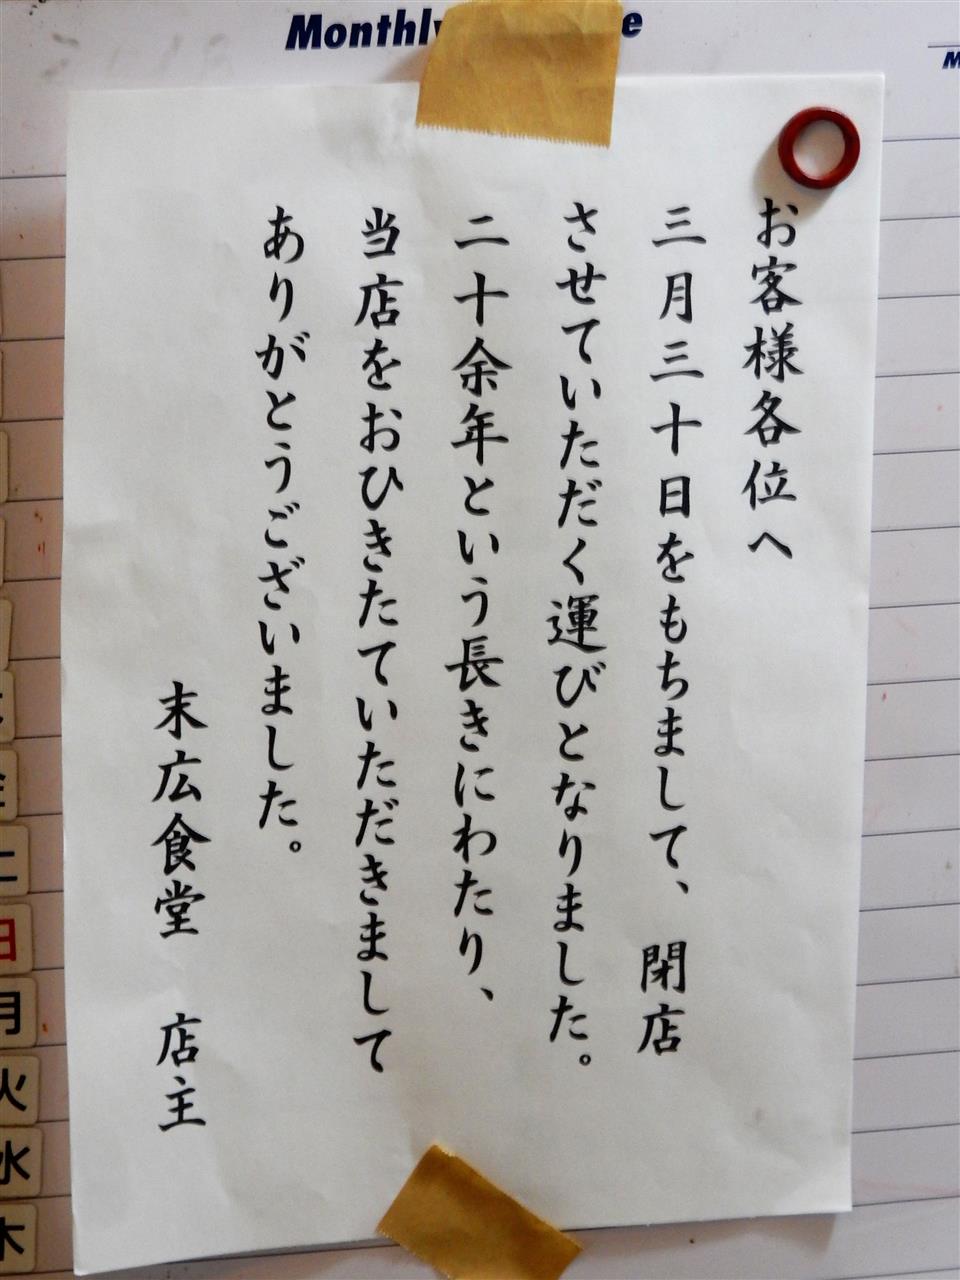 Monthly
お客様各位へ
三月三十日をもちまして、閉店
させていただく運びとなりました。
二十余年という長きにわたり、
当店をおひきたていただきまして
ありがとうございました。
末広食堂　店主
土
日
月
火
水
木